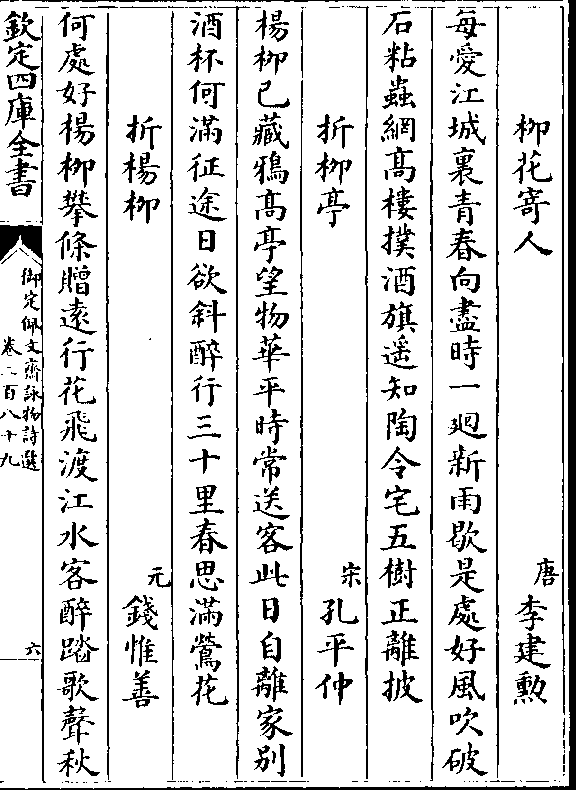 柳花寄人　唐　李建勲
每愛江城裏青春向盡時一廻新雨歇是處好風吹破
石粘蟲網高樓撲酒旗遥知陶令宅五樹正離披
折柳亭　宋　孔平仲
楊柳已藏鴉高亭望物華平時常送客此日自離家别
酒杯何滿征途日欲斜醉行三十里春思滿鶯花
折楊柳　元　錢惟善
何處好楊柳攀條贈遠行花飛渡江水客醉踏歌聲秋
欽定四庫全書
御定佩文齋詠物詩選
卷二百八十九
六